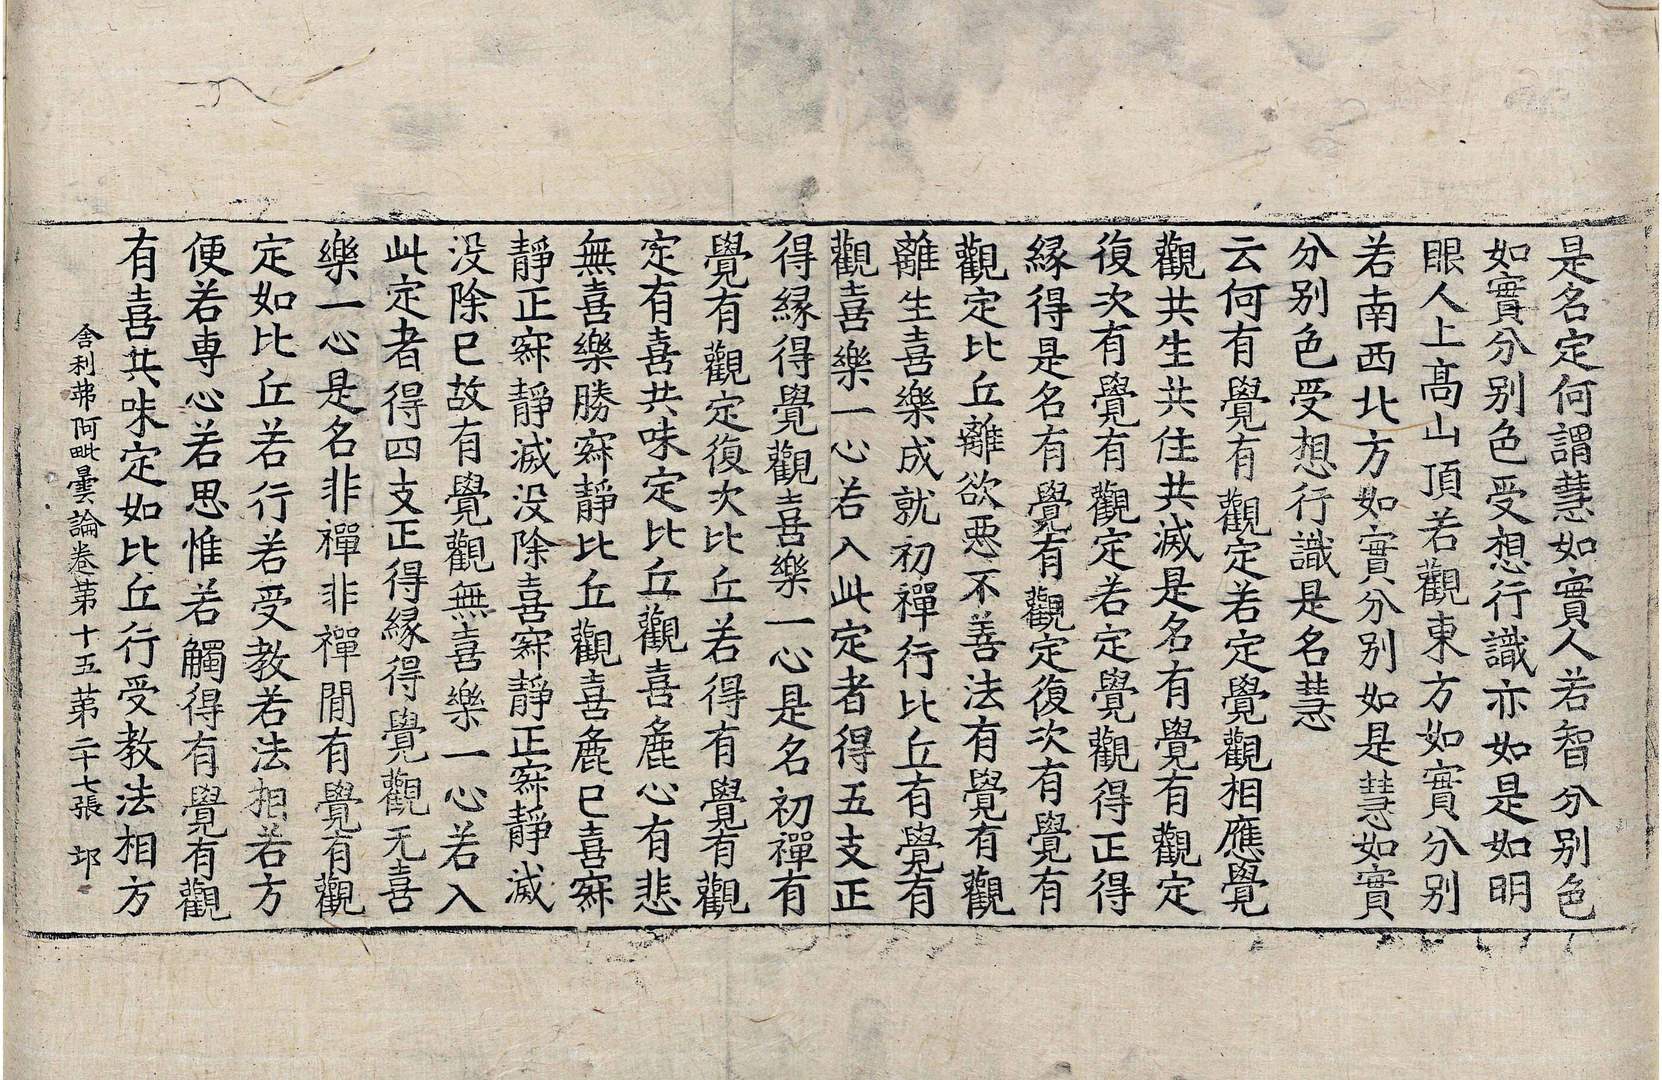 是名定何謂慧如實人若智分别色
如實分别色受想行識亦如是如明
眼人上髙山頂若觀東方如實分别
若南西北方如實分别如是慧如實
分别色受想行識是名慧
云何有覺有觀定若定覺觀相應覺
觀共生共住共滅是名有覺有觀定
復次有覺有觀定若定覺觀得正得
縁得是名有覺有觀定復次有覺有
觀定比丘離欲惡不善法有覺有觀
離生喜樂成就初禪行比丘有覺有
觀喜樂一心若入此定者得五支正
得縁得覺觀喜樂一心是名初禪有
覺有觀定復次比丘若得有覺有觀
定有喜共味定比丘觀喜麁心有悲
無喜樂勝寂靜比丘觀喜麁已喜寂
靜正寂靜滅没除喜寂靜正寂靜滅
没除已故有覺觀無喜樂一心若入
此定者得四支正得縁得覺觀无喜
樂一心是名非禪非禪間有覺有觀
定如比丘若行若受教若法相若方
便若専心若思惟若觸得有覺有觀
有喜共味定如比丘行受教法相方
舎利弗阿毗曇論卷苐十五苐二十七張 邛